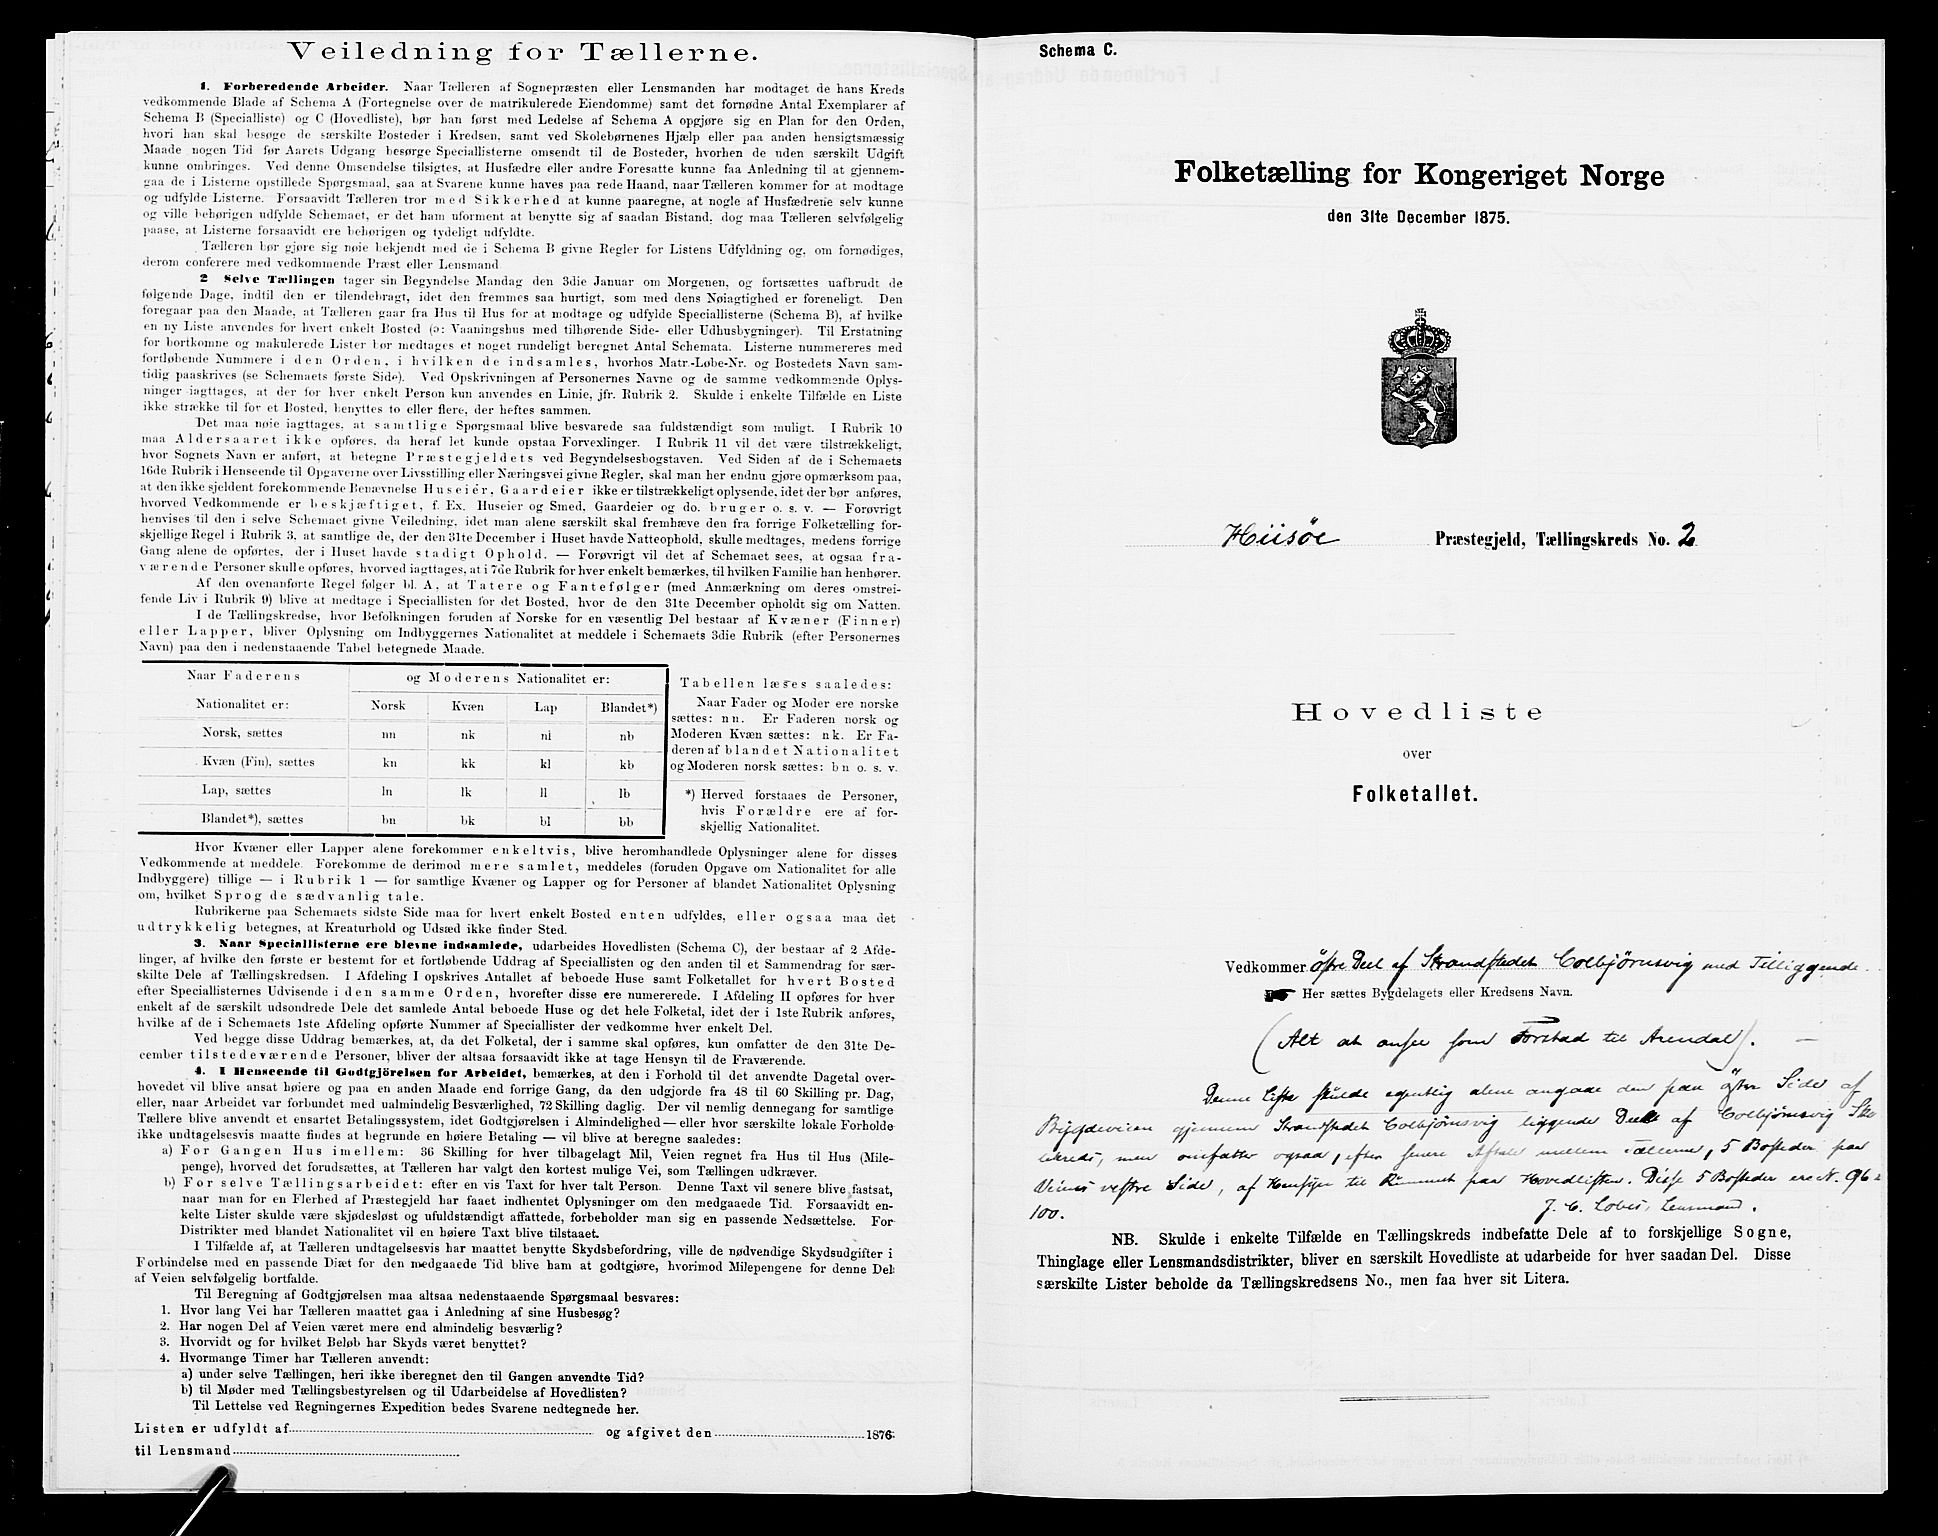 Veiledning for Tællerne.
1. Forberedende Arbeider. Naar Tælleren af Sognepræsten eller Lensmanden har modtaget de hans Kreds
vedkommende Blade af Schema A (Fortegnelse over de matrikulerede Eiendomme) samt det fornødne Antal Exemplarer af
Schema B (Specialliste) og C (Hovedliste), bør han først med Ledelse af Schema A opgjøre sig en Plan for den Orden,
hvori han skal besøge de særskilte Bosteder i Kredsen, samt ved Skolebørnenes Hjælp eller paa anden hensigtsmæssig
Maade nogen Tid før Aarets Udgang besørge Speciallisterne omsendt til de Bosteder, hvorhen de uden særskilt Udgift
kunne ombringes. Ved denne Omsendelse tilsigtes, at Husfædre eller andre Foresatte kunne faa Anledning til at gjennem-
gaa de i Listerne opstillede Spørgsmaal, saa at Svarene kunne haves paa rede Haand, naar Tælleren kommer for at modtage
og udfylde Listerne. Forsaavidt Tælleren tror med Sikkerhed at kunne paaregne, at nogle af Husfædrene selv kunne
og ville behørigen udfylde Schemaet, er det ham uforment at benytte sig af saadan Bistand, dog maa Tælleren selvfølgelig
paase, at Listerne forsaavidt ere behørigen og tydeligt udfyldte.
Tælleren bør gjøre sig nøie bekjendt med de i Schema B givne Regler for Listens Udfyldning og, om fornødiges,
derom conferere med vedkommende Præst eller Lensmand
2 Selve Tællingen tager sin Begyndelse Mandag den 3die Januar om Morgenen, og fortsættes uafbrudt de
følgende Dage, indtil den er tilendebragt, idet den fremmes saa hurtigt, som med dens Nøiagtighed er foreneligt. Den
foregaar paa den Maade, at Tælleren gaar fra Hus til Hus for at modtage og udfylde Speciallisterne (Schema B), af hvilke
en ny Liste anvendes for hvert enkelt Bosted (ɔ: Vaaningshus med tilhørende Side- eller Udhusbygninger). Til Erstatning
for bortkomne og makulerede Lister bør medtages et noget rundeligt beregnet Antal Schemata. Listerne nummereres med
fortløbende Nummere i den Orden, i hvilken de indsamles, hvorhos Matr-Løbe-Nr. og Bostedets Navn sam-
tidig paaskrives (se Schemaets første Side). Ved Opskrivningen af Personernes Navne og de samme vedkommende Oplys-
ninger iagttages, at der for hver enkelt Person kun anvendes en Linie, jfr. Rubrik 2. Skulde i enkelte Tilfælde en Liste
ikke strække til for et Bosted, benyttes to eller flere, der heftes sammen.
Det maa nøie iagttages, at samtlige Spørgsmaal blive besvarede saa fuldstændigt som muligt. I Rubrik 10
maa Aldersaaret ikke opføres, da heraf let kunde opstaa Forvexlinger. I Rubrik 11 vil det være tilstrækkeligt,
hvor Sognets Navn er anført, at betegne Præstegjeldets ved Begyndelsesbogstaven. Ved Siden af de i Schemaets
16de Rubrik i Henseende til Opgaverne over Livsstilling eller Næringsvei givne Regler, skal man her endnu gjøre opmærksom paa,
at den ikke sjeldent forekommende Benævnelse Huseiér, Gaardeier ikke er tilstrækkeligt oplysende, idet der bør anføres,
hvorved Vedkommende er beskjæftiget, f. Ex. Huseier og Smed, Gaardeier og do. bruger o. s. v. — Forøvrigt
henvises til den i selve Schemaet givne Veiledning, idet man alene særskilt skal fremhæve den fra forrige Folketælling for-
skjellige Regel i Rubrik 3, at samtlige de, der den 31te December i Huset havde Natteophold, skulle medtages, medens forrige
Gang alene de opførtes, der i Huset havde stadigt Ophold. — Forøvrigt vil det af Schemaet sees, at ogsaa fra-
værende Personer skulle opføres, hvorved iagttages, at i 7de Rubrik for hver enkelt bemærkes, til hvilken Familie han henhører.
Af den ovenanførte Regel følger bl. A., at Tatere og Fantefølger (med Anmærkning om deres omstrei-
fende Liv i Rubrik 9) blive at medtage i Speciallisten for det Bosted, hvor de den 31te December opholdt sig om Natten.
I de Tællingskredse, hvor Befolkningen foruden af Norske for en væsentlig Del bestaar af Kvæner (Finner)
eller Lapper, bliver Oplysning om Indbyggernes Nationalitet at meddele i Schemaets 3die Rubrik (efter Personernes
Navn) paa den i nedenstaaende Tabel betegnede Maade.
Naar Faderens og Moderens Nationalitet er:
Nationalitet er: Norsk Kvæn Lap Blandet*)
Norsk, sættes nn nk nl nb
Kvæn (Fin), sættes kn kk kl kb
Lap, sættes ln lk ll lb
Blandet*), sættes bn bk bl bb
Tabellen læses saaledes:
Naar Fader og Moder ere norske
sættes: nn. Er Faderen norsk og
Moderen Kvæn sættes: nk. Er Fa-
deren af blandet Nationalitet
og Moderen norsk sættes: bn o. s. v.
*) Herved forstaaes de Personer,
hvis Forældre ere af for-
skjellig Nationalitet.
Hvor Kvæner eller Lapper alene forekommer enkeltvis, blive heromhandlede Oplysninger alene for disses
Vedkommende at meddele. Forekomme de derimod mere samlet, meddeles (foruden Opgave om Nationalitet for alle
Indbyggere) tillige — i Rubrik 1 — for samtlige Kvæner og Lapper og for Personer af blandet Nationalitet Oplysning
om, hvilket Sprog de sædvanlig tale.
Rubrikerne paa Schemaets sidste Side maa for hvert enkelt Bosted enten udfyldes, eller ogsaa maa det
udtrykkelig betegnes, at Kreaturhold og Udsæd ikke finder Sted.
3. Naar Speciallisterne ere blevne indsamlede, udarbeides Hovedlisten (Schema C), der bestaar af 2 Afde-
linger, af hvilke den første er bestemt for et fortløbende Uddrag af Speciallisten og den anden til et Sammendrag for sær-
skilte Dele af Tællingskredsen. I Afdeling I opskrives Antallet af beboede Huse samt Folketallet for hvert Bosted
efter Speciallisternes Udvisende i den samme Orden, hvorefter disse ere numererede. I Afdeling II opføres for hver
enkelt af de særskilt udsondrede Dele det samlede Antal beboede Huse og det hele Folketal, idet der i 1ste Rubrik anføres,
hvilke af de i Schemaets 1ste Afdeling opførte Nummer af Speciallister der vedkomme hver enkelt Del.
Ved begge disse Uddrag bemærkes, at, da det Folketal, der i samme skal opføres, kun omfatter de den 31te De-
cember tilstedeværende Personer, bliver der altsaa forsaavidt ikke at tage Hensyn til de Fraværende.
4. I Henseende til Godtgjörelsen for Arbeidet, bemærkes, at den i Forhold til det anvendte Dagetal over-
hovedet vil blive ansat høiere og paa en anden Maade end forrige Gang, da den udgjorde fra 48 til 60 Skilling pr. Dag,
eller, naar Arbeidet var forbundet med ualmindelig Besværlighed, 72 Skilling daglig. Der vil nemlig dennegang for samtlige
Tællere blive anvendt et ensartet Betalingssystem, idet Godtgjørelsen i Almindelighed — eller hvor særskilte lokale Forholde
ikke undtagelsesvis maatte findes at begrunde en høiere Betaling — vil blive at beregne saaledes:
a) For Gangen Hus imellem: 36 Skilling for hver tilbagelagt Mil, Veien regnet fra Hus til Hus (Mile-
penge), hvorved det forudsættes, at Tælleren har valgt den kortest mulige Vei, som Tællingen udkræver.
b) For selve Tællingsarbeidet: efter en vis Taxt for hver talt Person. Denne Taxt vil senere blive fastsat,
naar man for en Flerhed af Præstegjeld har faaet indhentet Oplysninger om den medgaaede Tid. Forsaavidt en-
kelte Lister skulde være skjødesløst og ufuldstændigt affattede, forbeholder man sig en passende Nedsættelse. For
Distrikter med blandet Nationalitet vil en høiere Taxt blive tilstaaet.
I Tilfælde af, at Tælleren undtagelsesvis har maattet benytte Skydsbefordring, ville de nødvendige Skydsudgifter i
Forbindelse med en passende Diæt for den medgaaede Tid blive ham at godtgjøre, hvorimod Milepengene for denne Del
af Veien selvfølgelig bortfalde.
Til Beregning af Godtgjörelsen maa altsaa nedenstaaende Spørgsmaal besvares:
1. Hvor lang Vei har Tælleren maattet gaa i Anledning af sine Husbesøg?
2. Har nogen Del af Veien været mere end almindelig besværlig?
3. Hvorvidt og for hvilket Beløb har Skyds været benyttet?
4. Hvormange Timer har Tælleren anvendt:
a) under selve Tællingen, heri ikke iberegnet den til Gangen anvendte Tid?
b) til Møder med Tællingsbestyrelsen og til Udarbeidelse af Hovedlisten?
Til Lettelse ved Regningernes Expedition bedes Svarene nedtegnede her.
Listen er udfyldt af og afgivet den 1876
til Lensmand
Schema C.
Folketælling for Kongeriget Norge
den 31te December 1875.
Hiisøe Præstegjeld, Tællingskreds No. 2
Hovedliste
over
Folketallet.
Vedkommer östre Deel af Strandstedet Colbjörnsvig med Tilliggende.
Her sættes Bygdelagets eller Kredsens Navn.
(Alt at ansee som Forstad til Arendal). —
Denne Liste skulde egentlig alene angaae den paa östre Side af
Bygdeveien gjennem Strandstedet Colbjørnsvig liggende Deel af Colbjørnsvig
kreds, men omfatter ogsaa, efter senere Aftale mellem Tællerne, 5 Bosteder paa
Veiens vestre Side, af Hensyn til Rummet paa Hovedlisten. Disse 5 Bosteder ere N. 96
100. J. C. Lensmand.
NB. Skulde i enkelte Tilfælde en Tællingskreds indbefatte Dele af to forskjellige Sogne,
Thinglage eller Lensmandsdistrikter, bliver en særskilt Hovedliste at udarbeide for hver saadan Del. Disse
særskilte Lister beholde da Tællingskredsens No., men faa hver sit Litera.